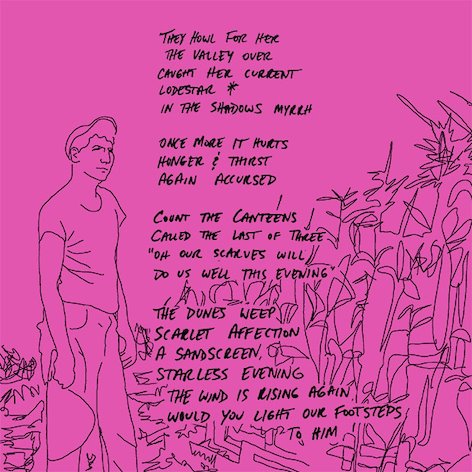 THEY HOWL FOR HER
THE VALLEY OVER
CAUGHT HER CURRENT
LODESTAR *
IN THE SHADOWS MYRRH
ONCE MORE IT HURTS
HUNGER & THIRST
AGAIN ACCURSED
COUNT THE CANTEENS
CALLED THE LAST OF THREE
"OH OUR SCARVES WILL
DO US WELL THIS EVENING"
THE DUNES WEEP
SCARLET AFFECTION
A SANDSCREEN,
STARLESS EVENING
THE WIND IS RISING AGAIN
WOULD YOU LIGHT OUR FOOTSTEPS
TO HIM